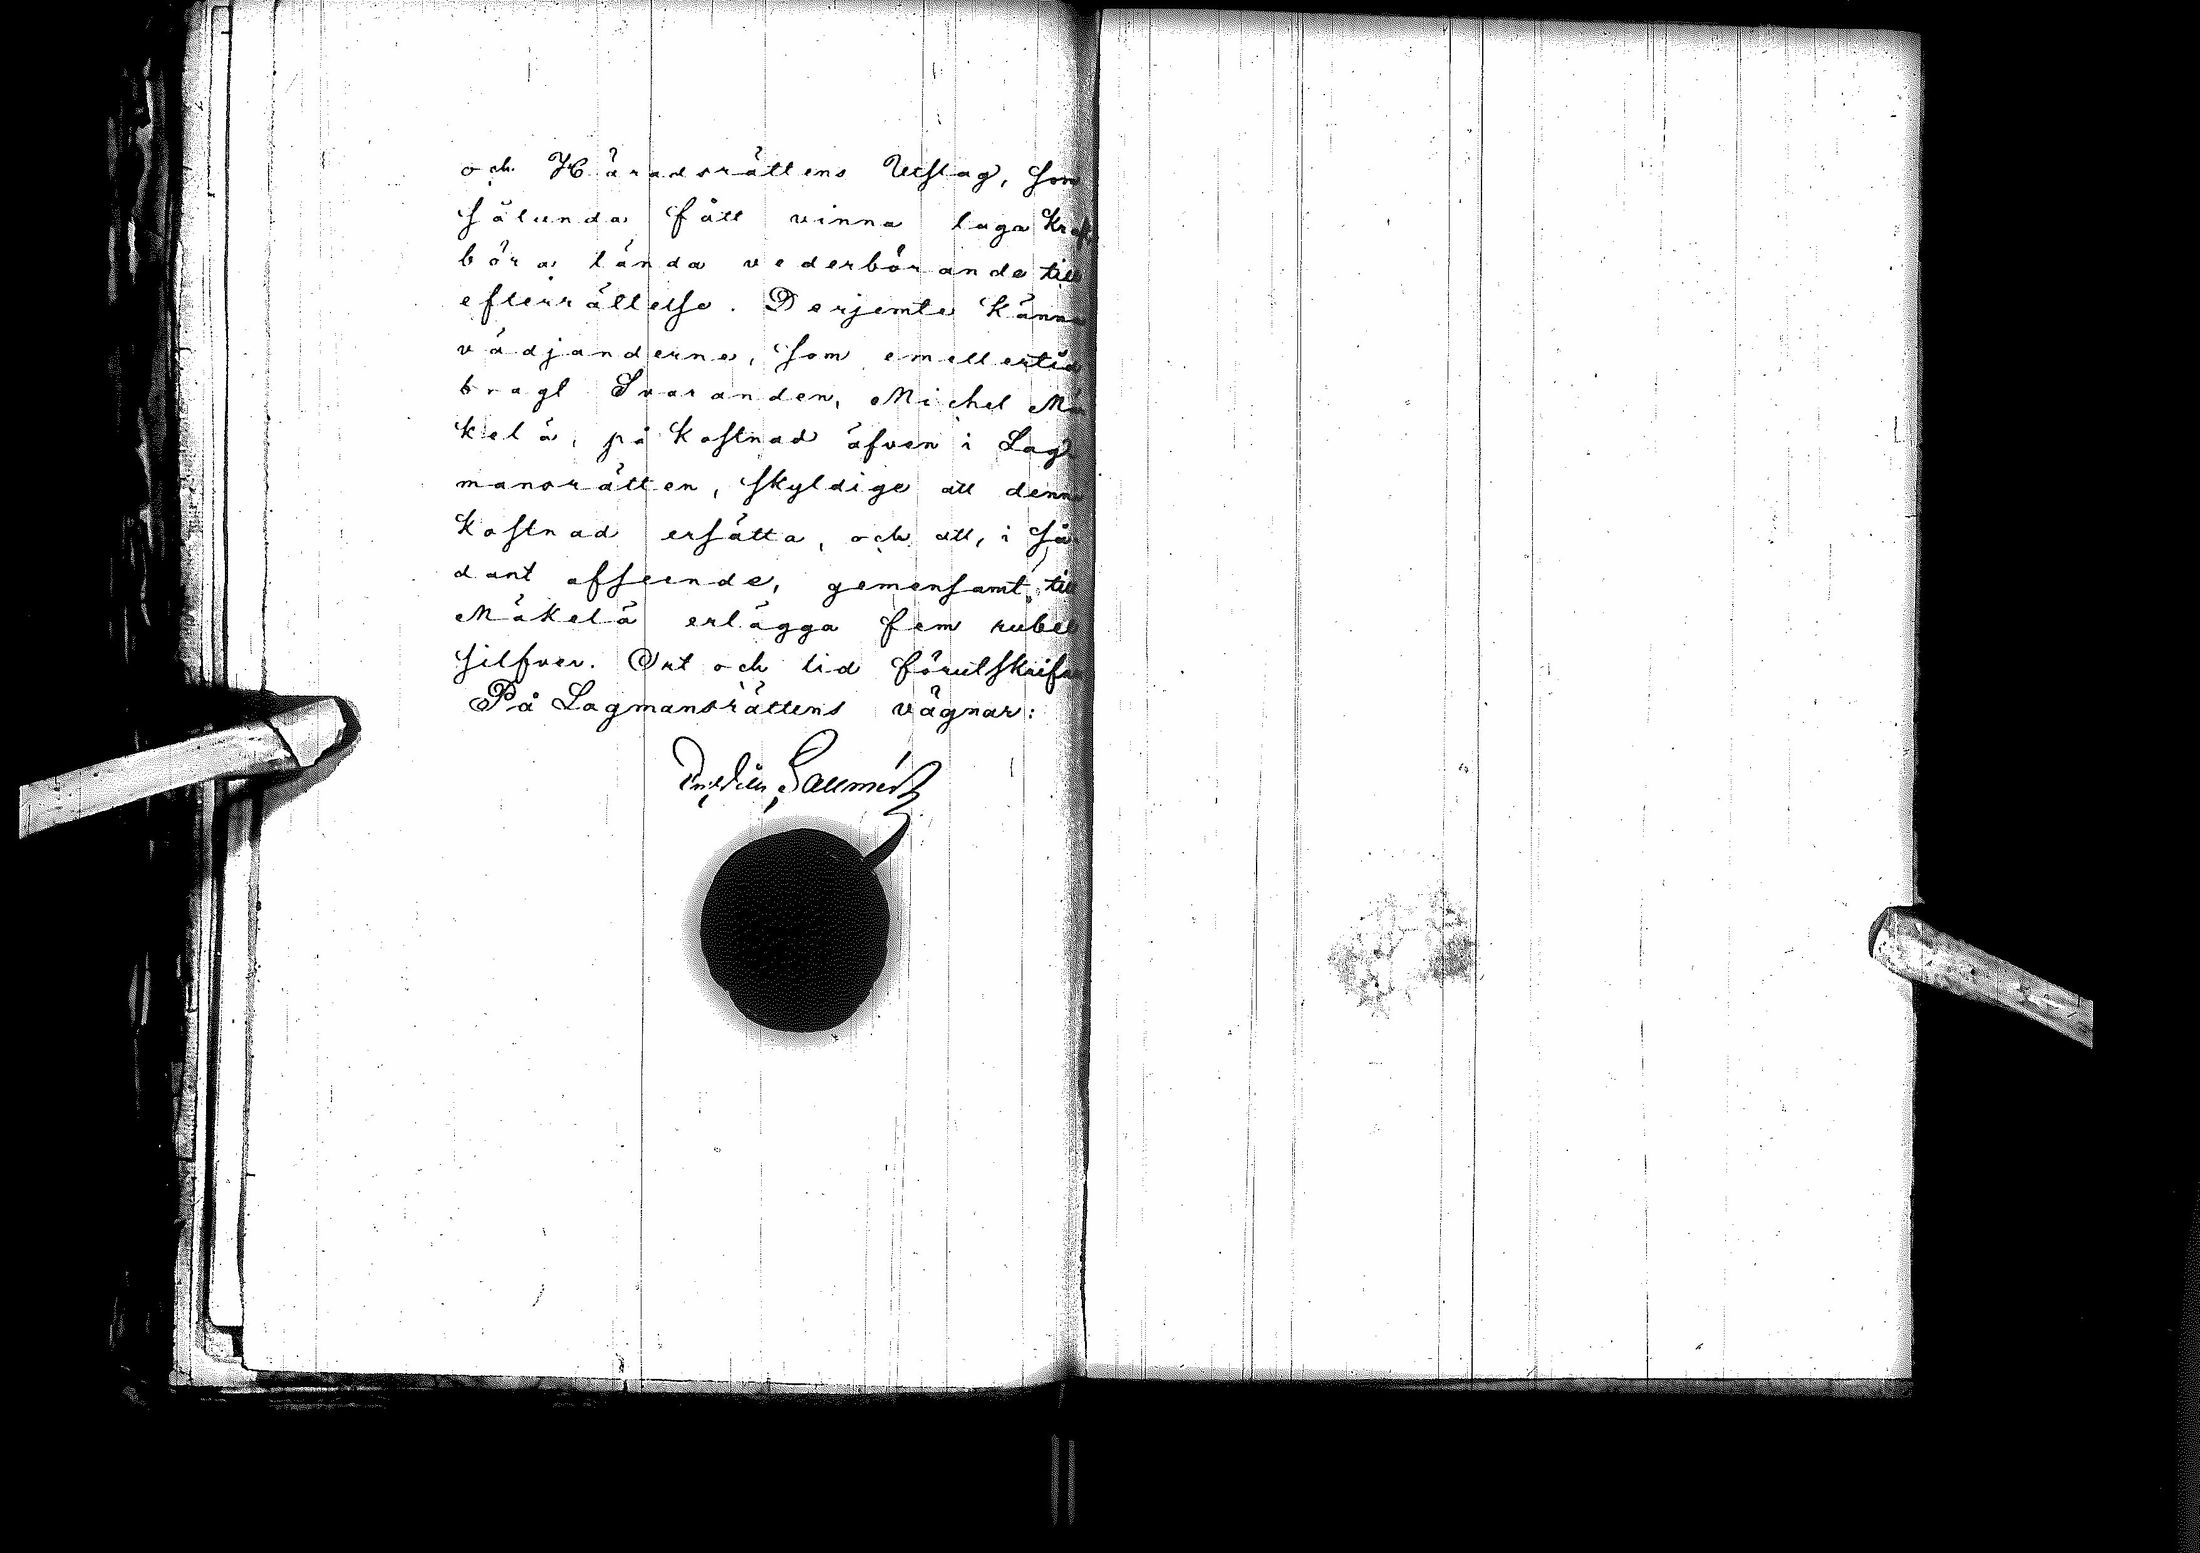 och Häradsrättens Utslag, som
sålunda fått vinna laga Kraft
böra lända vederbörande till
efterrättelse. Derjemte Känna
vädjanderne, som emellertid
bragt Svaranden, Michel Mä
kelä, på Kostnad äfven i Lag
mansrätten, skyldige att denna
Kostnad ersätta, och att, i så
dant afseende, gemensamt till
Mäkelä erlägga fem rubel
silfver. Ort och tid förutskrifne
På Lagmansrättens vägnar: